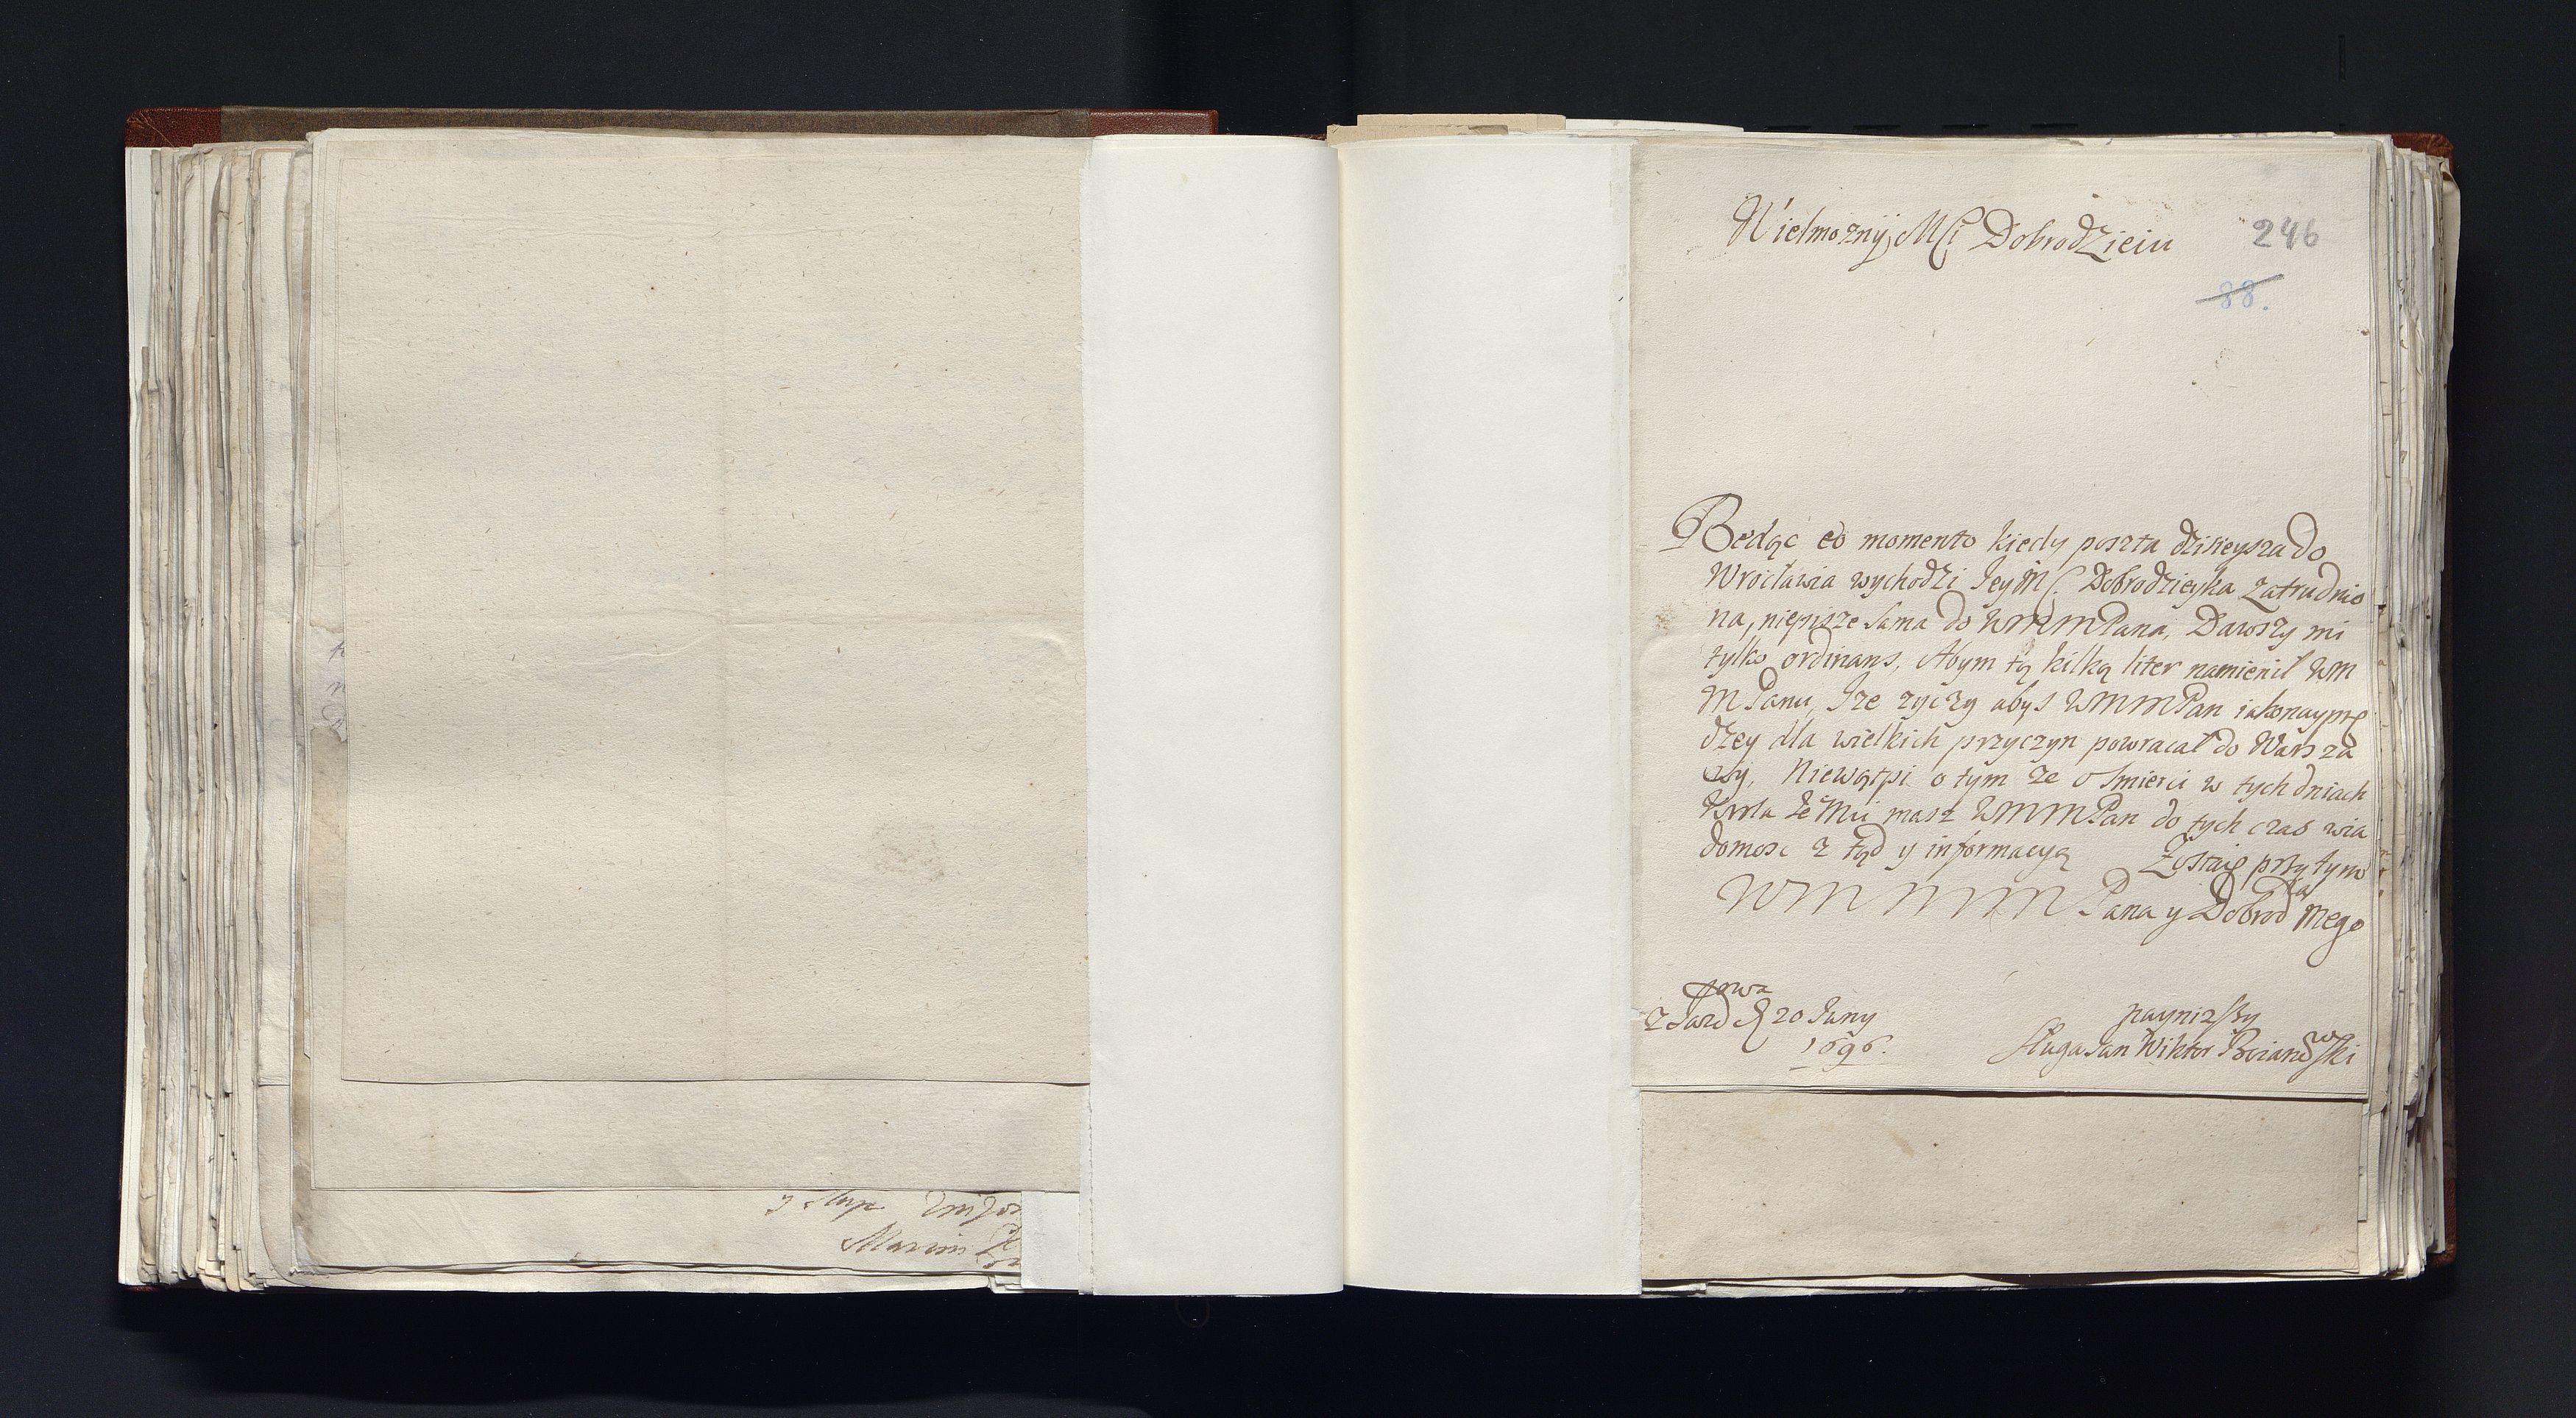 y Słup
Marcin
246
Wielmozny Mſci Dobrodzieiu
88.
Bedąc eo momento kiedy poszta dzisieysza do
Wrocławia wychodzi JeyMſ. Dobrodzieyka zatrudnio
na, niepisze sama do WMMMPana, Dawszy mi
tylko ordinans, Abym tą kilką liter namienił WM
MPanu, Jze zyczy abys WMMMPan iakonayprę
dzey dla wielkich przyczyn powracał do Warsza
wy, Niewątpi o tym ze o smierci w tych dniach
Krola JeMci masz WMMMPan do tych czas wia
domosc z tąd y informacyą Zostaię przy tym
WMMMM Pana y Dobrod mego
20 Juny
1696.
naynizszy
sługa Jan Wiktor